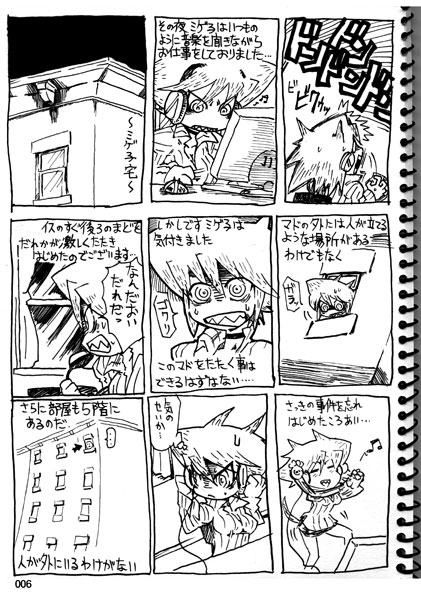 〜ミゲ子宅〜
その夜ミゲるはいつもの
ように音楽を聞きながら
お仕事をしておりました…
ドンドンドンドン
ビクゥッ
イスのすぐ後ろのまどを
だれかが激しくたたき
はじめたのでございます
なんだおい
だれだっ
しかしですミゲるは
気付きました
このマドをたたく事は
できるはずはない……
マドの外には人が立てる
ような場所がある
わけでもなく
ガラッ
さらに部屋も5階に
あるのだ
人が外にいるわけがない
気の
せいか…
さっきの事件を忘れ
はじめたころあい…
006